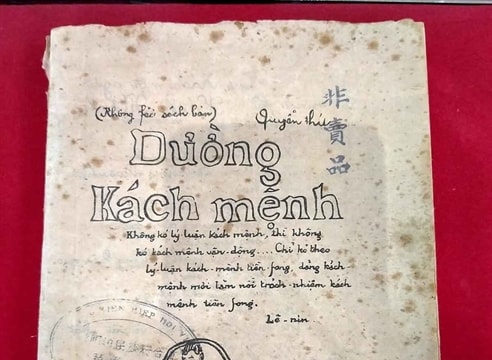 (Không fải sách bán)
Quyển thứ
非賣品
Đường
Kách mệnh
Không kó lý luận kách mệnh, thì không
kó kách mệnh vận-động.... Chỉ kó theo
lý-luận kách-mệnh tiền-fong, đảng kách
mệnh mới làm nổi trách-nhiệm kách
mệnh tiền fong.
Lê-nin